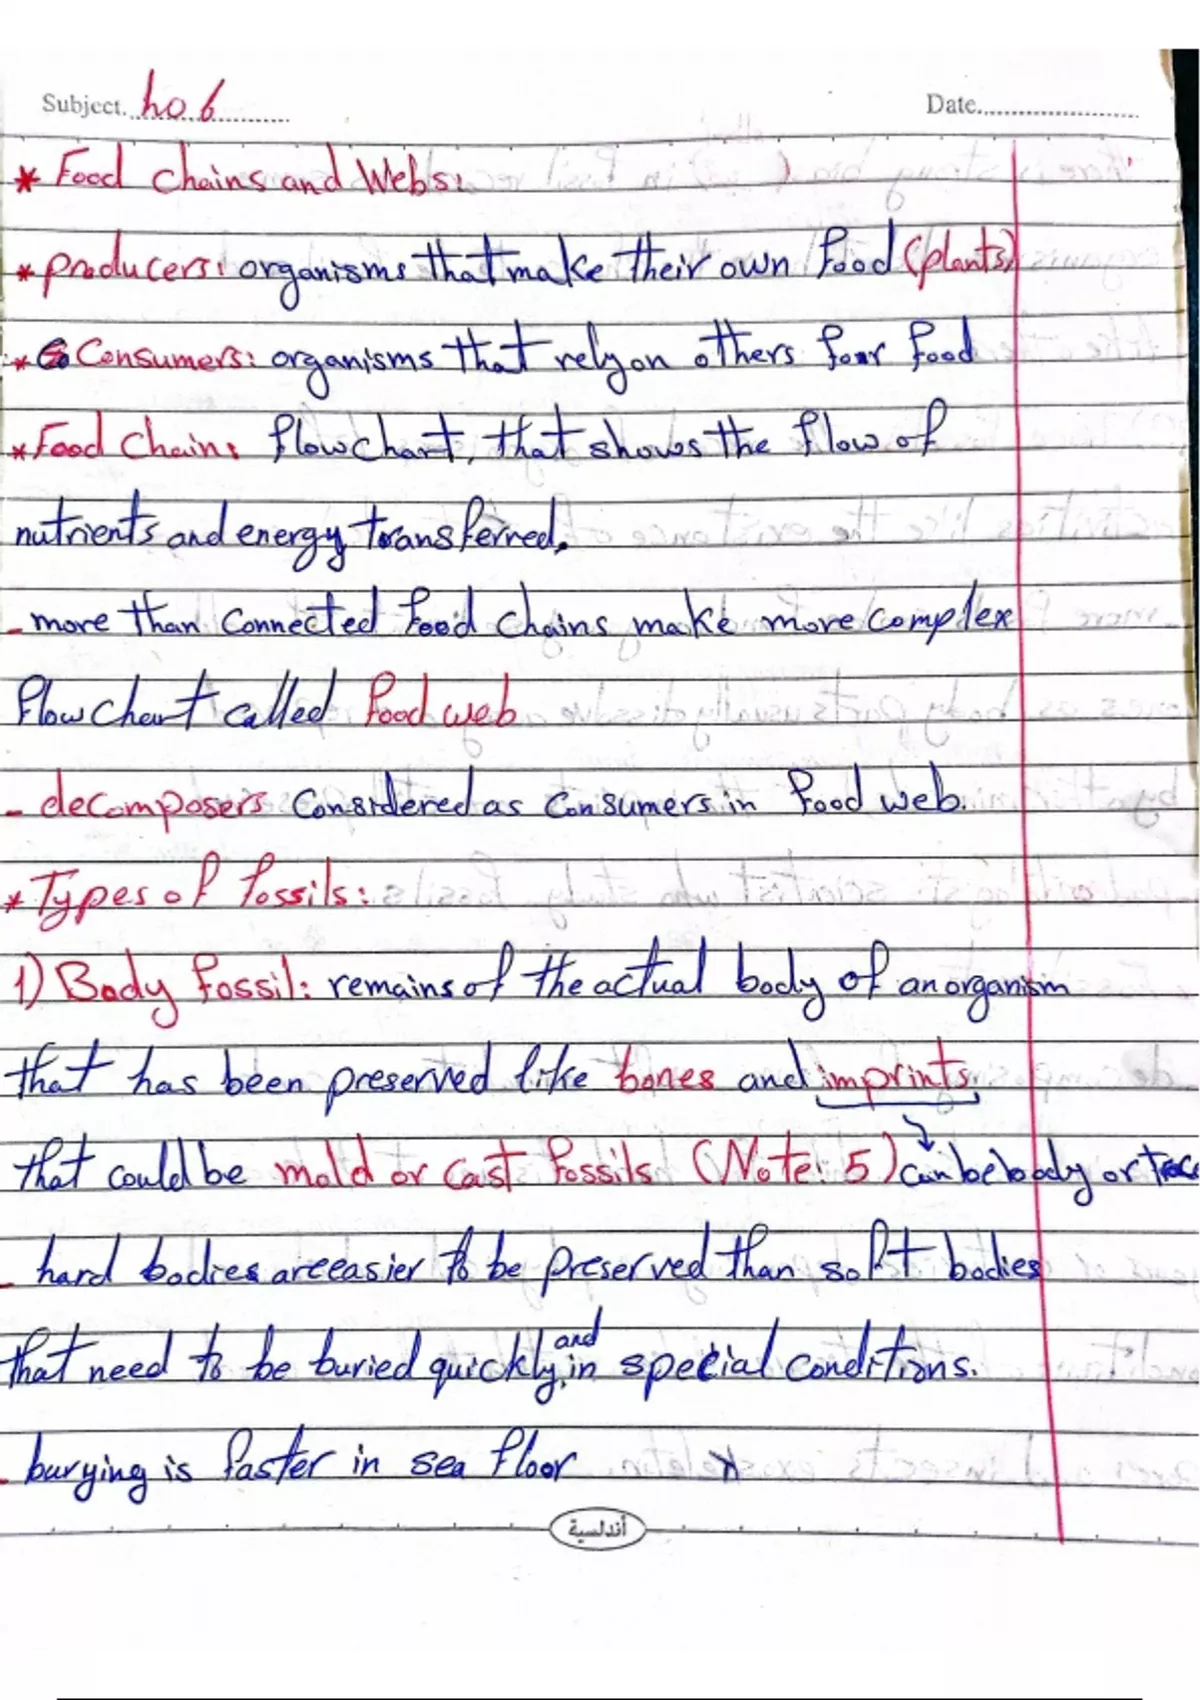 Subject. ho 6 Date.
* Food chains and Webs:
* producers: organisms that make their own food (plants)
* Consumers: organisms that rely on others for food
* Food Chain: flowchart, that shows the flow of
nutrients and energy transferred.
- more than connected food chains make more complex
flowchart called food web
- decomposers considered as consumers in food web.
* Types of fossils:
1) Body fossil: remains of the actual body of an organism
that has been preserved like bones and imprints
that could be mold or cast fossils (Note: 5) can be body or trace
- hard bodies are easier to be preserved than soft bodies
that need to be buried quickly, and in special conditions.
- burying is faster in sea floor
أندلسية